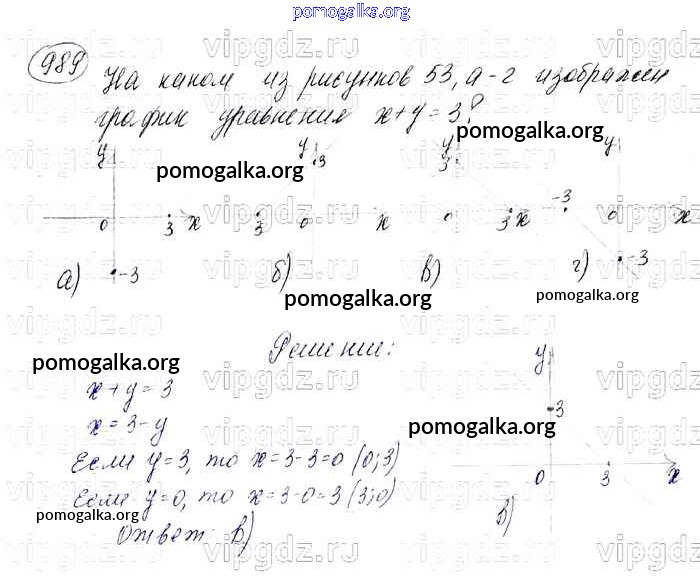 pomogalka.org
989
На каком из рисунков 53, а-г изображен
график уравнения x+y=3?
pomogalka.org
y 0 3 x -3 а)
y 3 3 0 x б)
y 3 0 3 x в)
y -3 0 x -3 г)
pomogalka.org
pomogalka.org
pomogalka.org
pomogalka.org
Решение:
x+y=3
x=3-y
Если y=3, то x=3-3=0 (0;3)
Если y=0, то x=3-0=3 (3;0)
Ответ: в)
y 3 0 3 x в)
pomogalka.org
pomogalka.org
vipgdz.ru